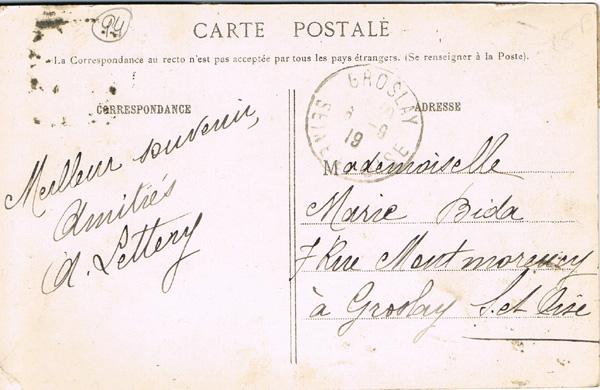 94
CARTE POSTALE
La Correspondance au recto n'est pas acceptée par tous les pays étrangers. (Se renseigner à la Poste).
CORRESPONDANCE
ADRESSE
GROSLAY
SEINE
OISE
19
Meilleur souvenir,
Amitiés
Mademoiselle
Marie Bida
7 Rue Montmorency
à Groslay S. et Oise